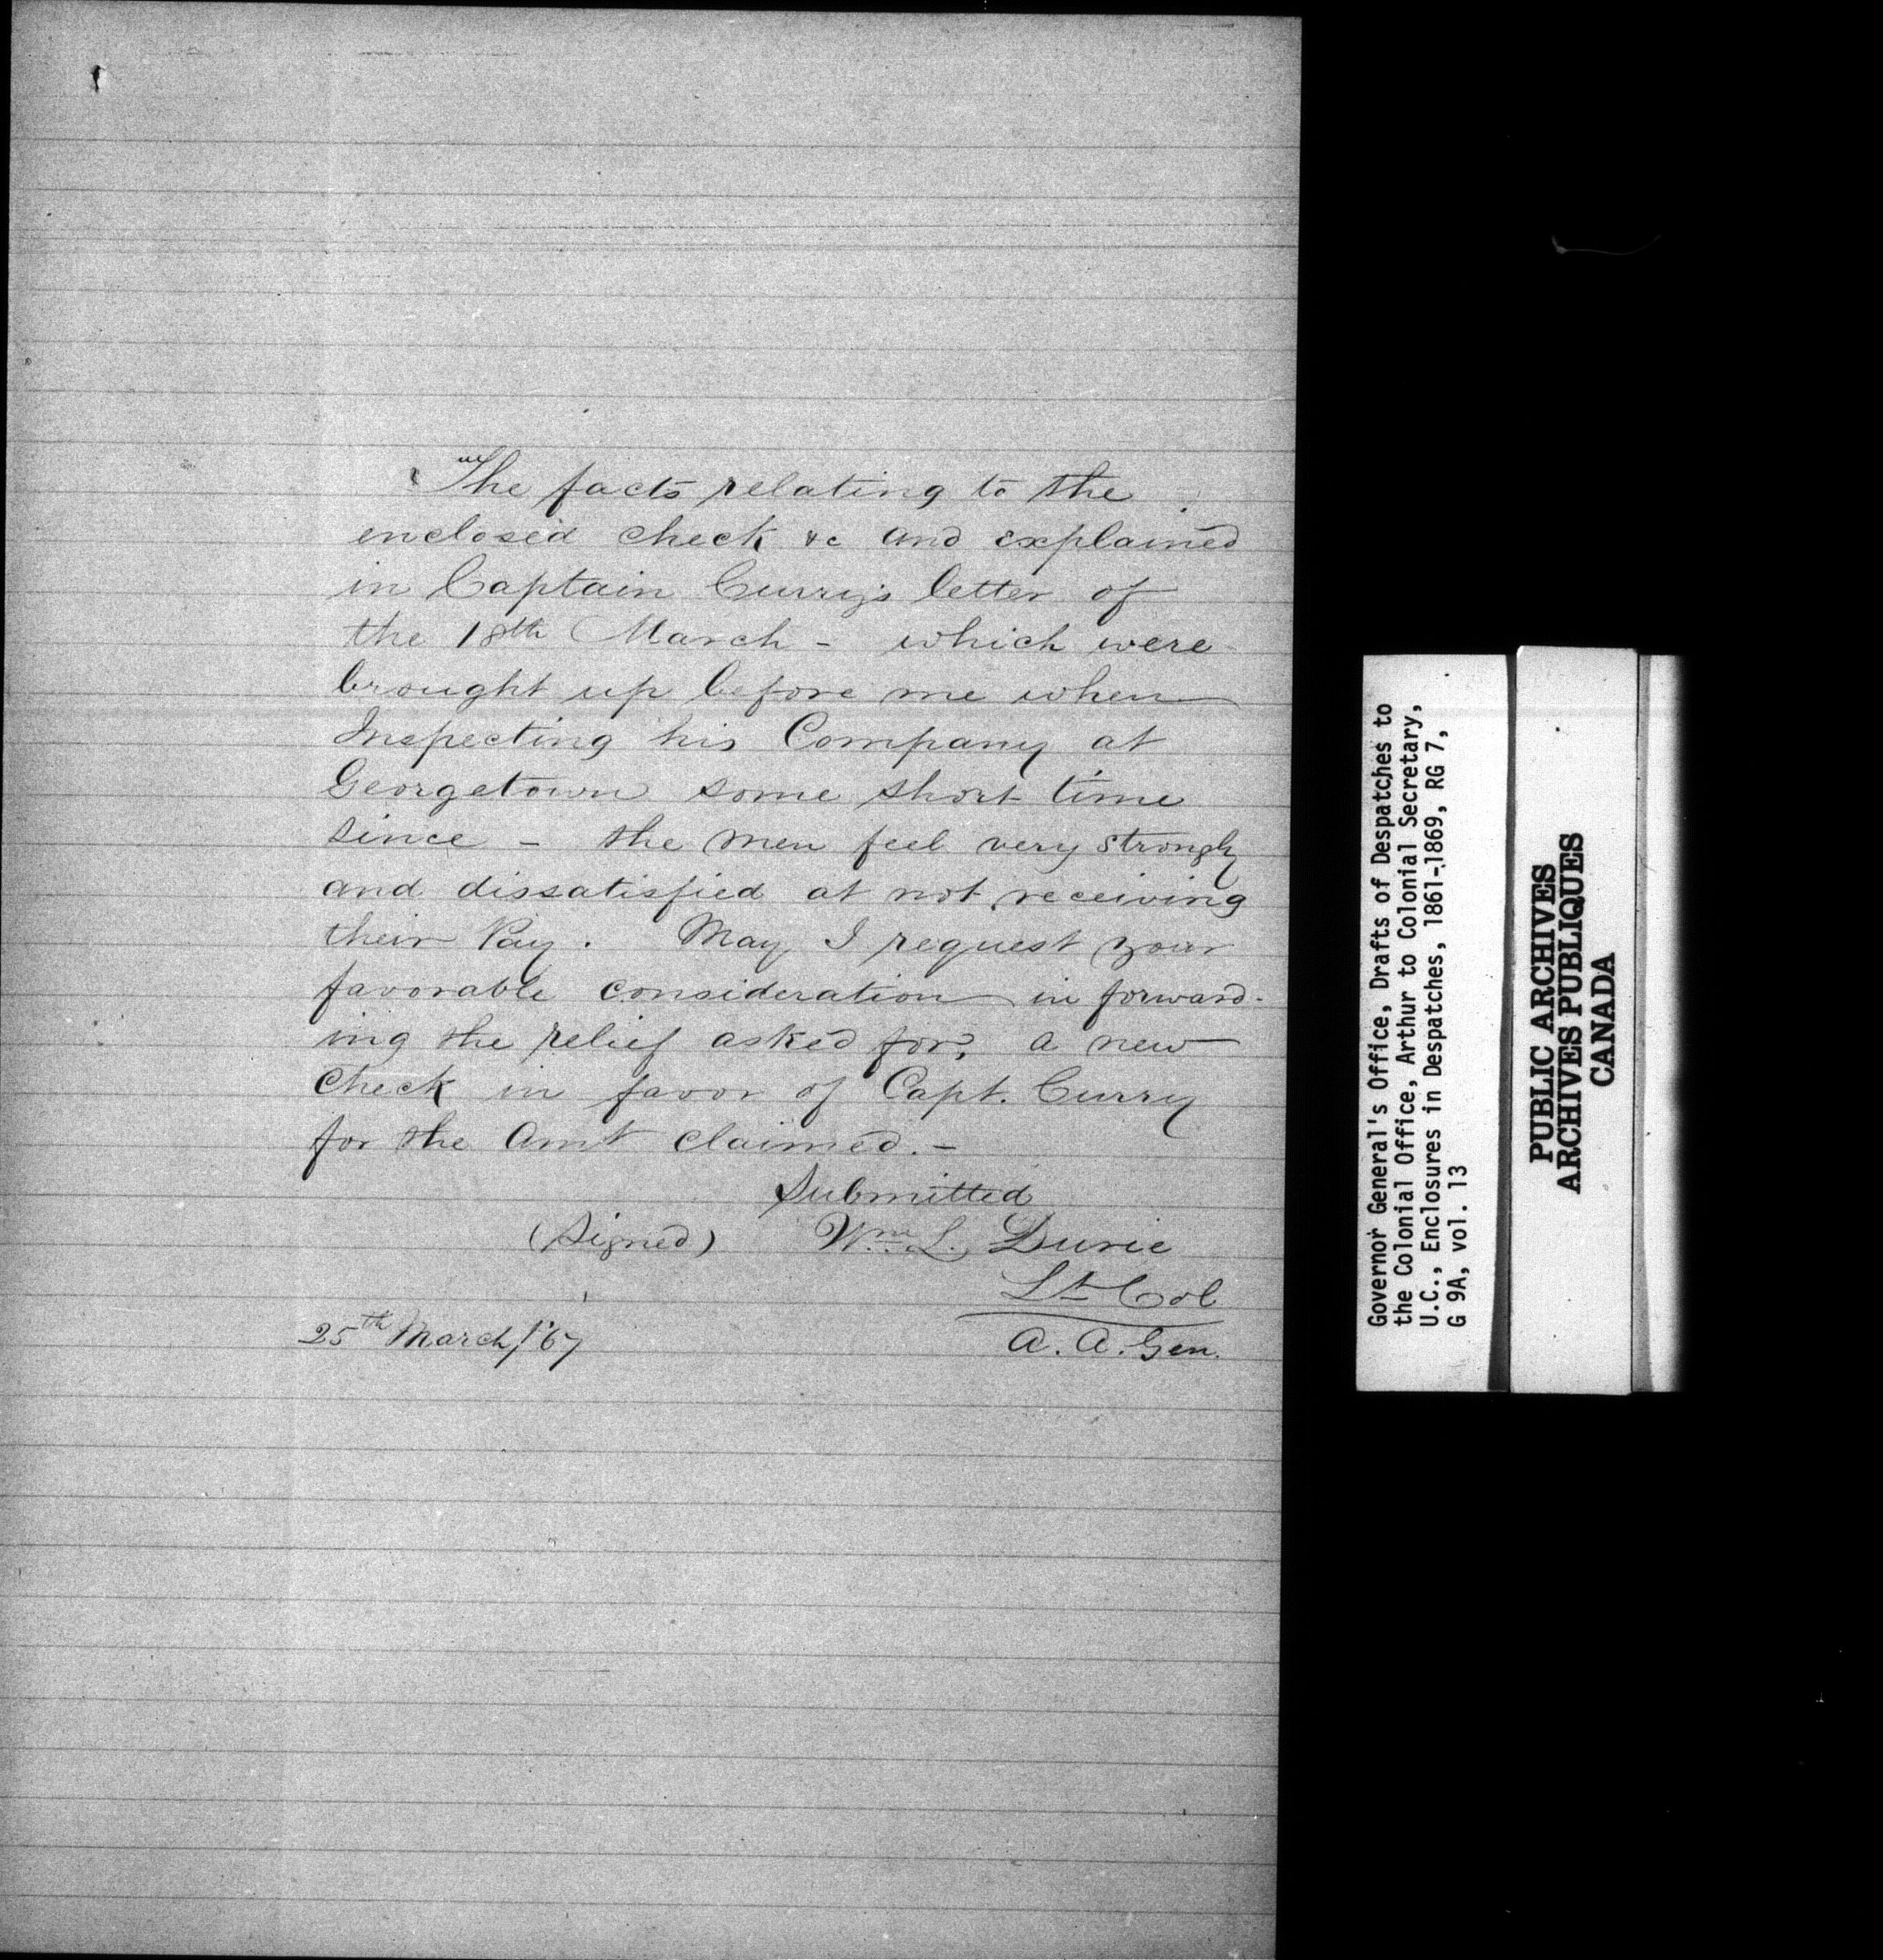 The facts relating to the
enclosed check &c and explained
in Captain Curry's letter of
the 18th March - which were
brought up before me when
Inspecting his Company at
Georgetown some short time
since - the men feel very strongly
and dissatisfied at not receiving
their Pay. May I request your
favorable consideration in forward-
ing the relief asked for, a new
Check in favor of Capt. Curry
for the Amt claimed. -
Submitted
(Signed) Wm L. Durie
Lt Col
25th March/'67 A. A. Gen.
Governor General's Office, Drafts of Despatches to
the Colonial Office, Arthur to Colonial Secretary,
U.C., Enclosures in Despatches, 1861-1869, RG 7,
G 9A, vol. 13
PUBLIC ARCHIVES
ARCHIVES PUBLIQUES
CANADA